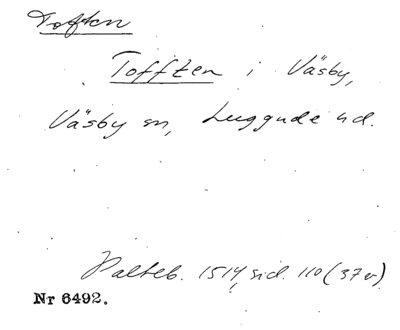 Toften
Tofften i Väsby,
Väsby sn, Luggude hd.
Palteb. 1514, sid. 110 (37v)
Nr 6492.